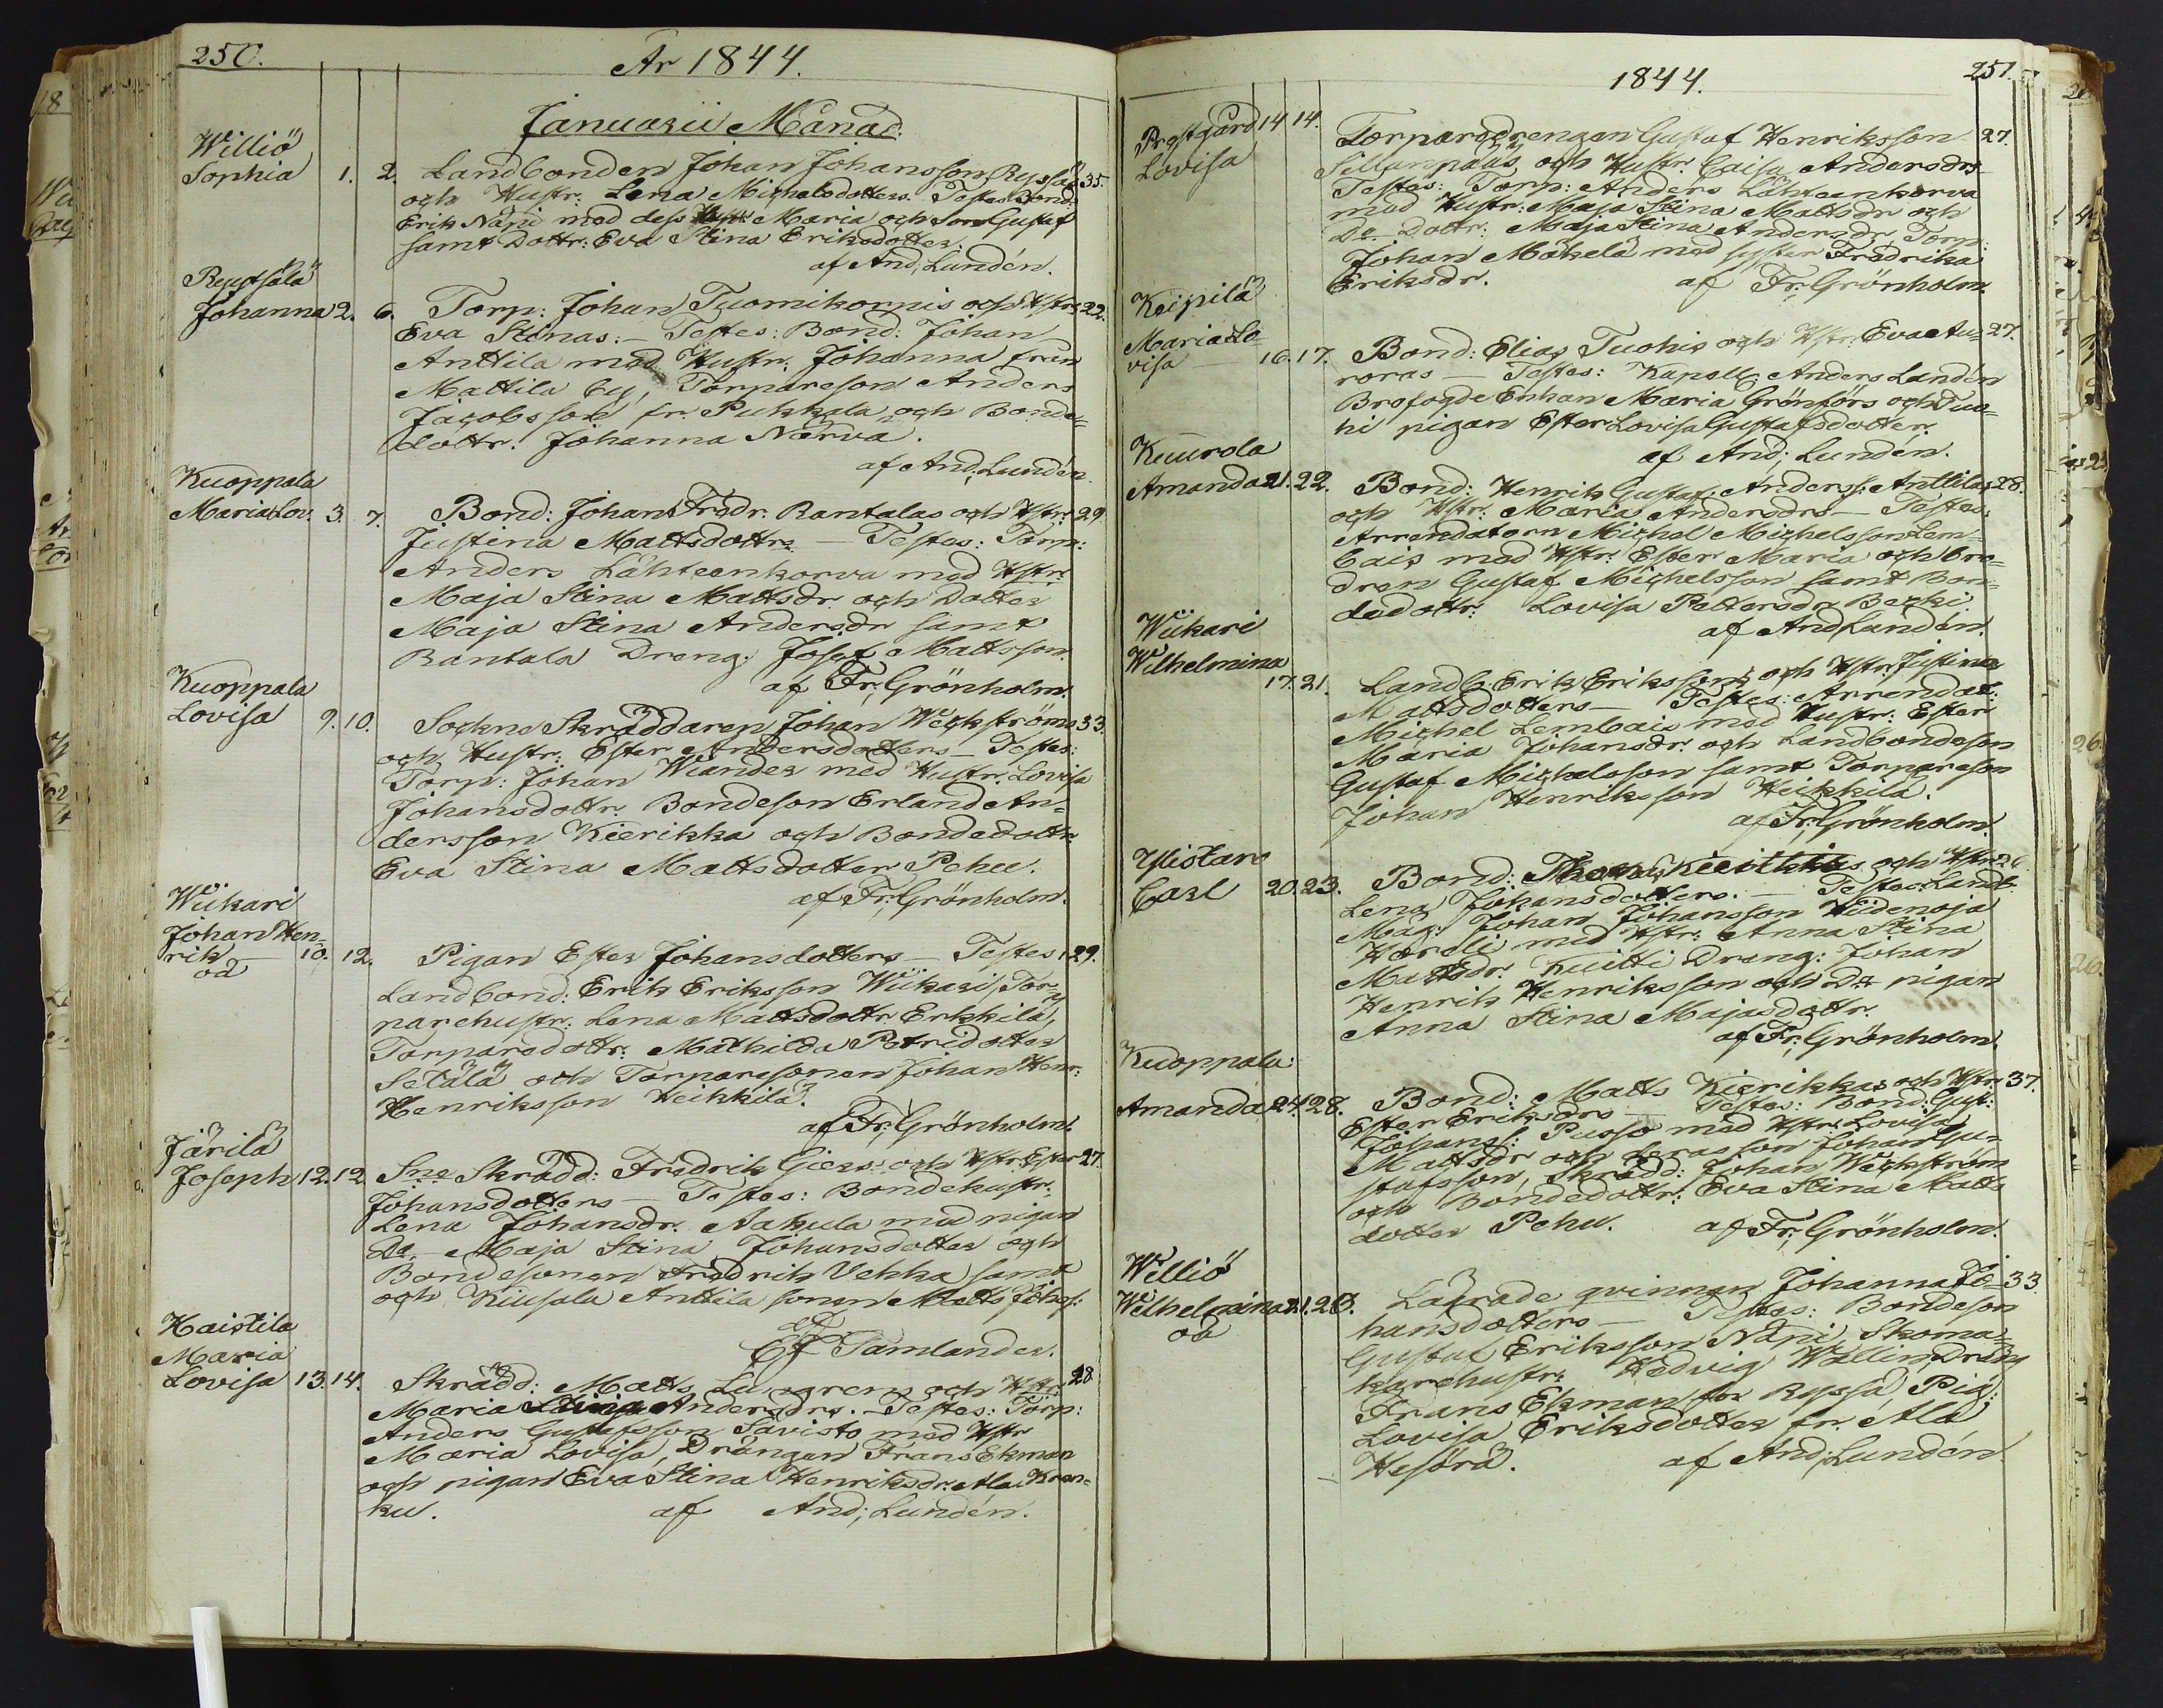 250.
År 1844.
Januarii Månad.
Williö
Sophia 1. 2. Landbonden Johan Johansson Ryssäs 35.
och Hustr. Lena Michelsdotters. Testes: Bond:
Erik Näpi med dess Hustr. Maria och Son Gustaf
samt Dottr: Eva Stina Eriksdotter.
af And; Lundén.
Ruutsälä
Johanna 2. 6. Torp: Johan Tuomikornis och Hstrs 22.
Eva Stinas. – Testes: Bond: Johan
Anttila med Hustr. Johanna från
Mattila by, Torpareson Anders
Jacobsson fr. Pukkala och Bonde=
dottr. Johanna Närvä.
af And; Lundén.
Kuoppala
Maria Lov: 3. 7. Bond: Johan Fredr. Rantalas och Hstr: 29.
Justina Mattsdottrs – Testes: Torp:
Anders Lähteenkorva med Hstr:
Maja Stina Mattsdr. och Dotter
Maja Stina Andersdr samt
Rantala Dreng: Josef Mattsson.
af Fr; Grönholm.
Kuoppala
Lovisa 9. 10. Sockne Skräddaren Johan Weckströms 33.
och Hustr: Ester Andersdotters – Testes:
Torp: Johan Wiander med Hustr. Lovisa
Johansdottr. Bondeson Erland An=
dersson Kierikka och Bondedottr
Eva Stina Mattsdotter Pehu.
af Fr; Grönholm.
Wiikari
Johan Hen=
rik – 10. 12. Pigan Ester Johansdotters – Testes: 29.
oä
Landbond: Erik Eriksson Wiikari, Tor=
parehustr: Lena Mattsdottr Erkkilä,
Torparedottr: Mathilda Petridotter
Setälä och Torparesonen Johan Henr:
Henriksson Heikkilä.
af Fr; Grönholm.
Järilä
Joseph 12. 12. Sne Skrädd: Fredrik Giers: och Hstr: Ester 27.
Johansdotters – Testes: Bondehustr.
Lena Johansdr. Aakula med pigan
Do – Maja Stina Johansdotter och
Bondesonen Fredrik Uekka samt
och Kiusala Anttila sonen Matts Johns:
af
Ef Tamlander.
Haistila
Maria
Lovisa 13. 14. Skrädd: Matts Lungrens och Hstr: 28
Maria Stina Andersdrs. – Testes: Torp:
Anders Gustafsson Savisto med Hstr
Maria Lovisa, Drängen Frans Ekman
och pigan Eva Stina Henriksdr: Ala Kran=
ku. af And; Lundén.
1844.
251.
Prestgård 14 14. Torparedrengen Gustaf Henriksson 27.
Lovisa
Sillanpääs och Hustr. Caisa Andersdrs
Testes: Torp: Anders Lähteenkorva
med Hustr: Maja Stina Mattsdr och
Do Dottr: Maja Stina Andersdr, Torp:
Johan Mäkelä med syster Fredrika
Eriksdr. af Fr; Grönholm.
Keipilä
Maria Lo=
visa – 16. 17. Bond: Elias Tuohis och Hstr: Eva Au= 27.
roras – Testes: Kapell: Anders Lundén
Brofogde Enkan Maria Grönfors och Tuo=
hi pigan Ester Lovisa Gustafsdotter.
af And; Lundén.
Kuurola
Amanda 21. 22. Bond: Henrik Gustaf Anders: Anttilas 28.
och Hstr. Maria Andersdrs – Testes:
Arrendatorn Michel Michelsson Lem=
bais med Hstr. Ester Maria och bro=
dren Gustaf Michelsson samt Bon=
dedottr: Lovisa Pettersdr Becki
af And; Lundén.
Wiikari
Wilhelmina
17. 21. Landb. Erik Erikssons och Hstr: Justina
Mattsdotters – Testes: Arrendat:
Michel Lembais med Hustr: Ester
Maria Johansdr. och Landbondeson
Gustaf Michelsson samt Torpareson
Johan Henriksson Heikkilä.
af Fr; Grönholm.
Ylistaro
Carl 20. 23. Bond: Thomas Kuittis och Hstr:
Lena Johansdotters. – Testes: Landb.
Måg: Johan Johansson Hiidenoja
Hardli med Hstr: Anna Stina
Mattsdr. Kuitti Dreng: Johan
Henrik Henriksson och Do pigan
Anna Stina Majasdottr.
af Fr; Grönholm.
Kuoppala:
Amanda 24. 28. Bond: Matts Kierikkas och Hstr: 37.
Ester Eriksdrs – Testes: Bond: Gust:
Johans: Pusso med Hstr: Lovisa
Mattsdr och deras son Johan Gu=
stafsson, Skrädd: Johan Weckström
och Bondedottr: Eva Stina Matts
dotter Pehu. af Fr; Grönholm.
Williö
Wilhelmina 21. 28. Lägrade qvinnan Johanna Jo= 33
oä
hansdotters – Testes: Bondeson
Gustaf Eriksson Näpi, Skoma=
karehustr: Hedvig Wallin, Dräng
Frans Ekman fr Ryssä, Pig:
Lovisa Eriksdotter fr. Ala
Hesörä. af And; Lundén.